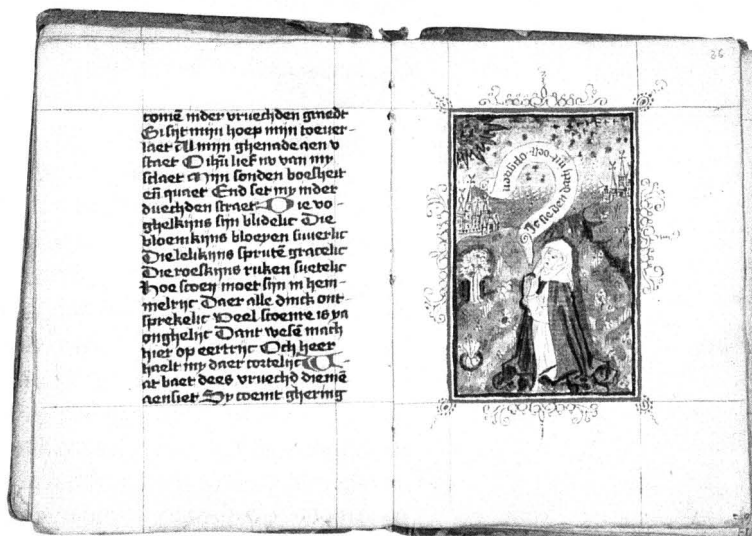 comē inder vruechden graedt
Ghi sijt mijn hoep mijn toever-
laet Al mijn ghenade aen v
staet O ihū lief nv van my
slaet Mijn sonden boesheit
eñ quaet End set my inder
duechden straet Die vo-
ghelkijns sijn blidelic Die
bloemkijns bloeyen suverlic
Die lelikijns sprutē gracelic
Die roeskijns ruken suetelic
Hoe scoen moet sijn in hem-
melrijc Daer alle dinck ont-
sprekelic Veel scoenre is vā
onghelijc Dant wesē mach
hier op eertrijc Och heer
haelt my daer cortelijc W
at baet dees vruechd diemē
aensiet Sy coemt ghering
36
Je lieven dach